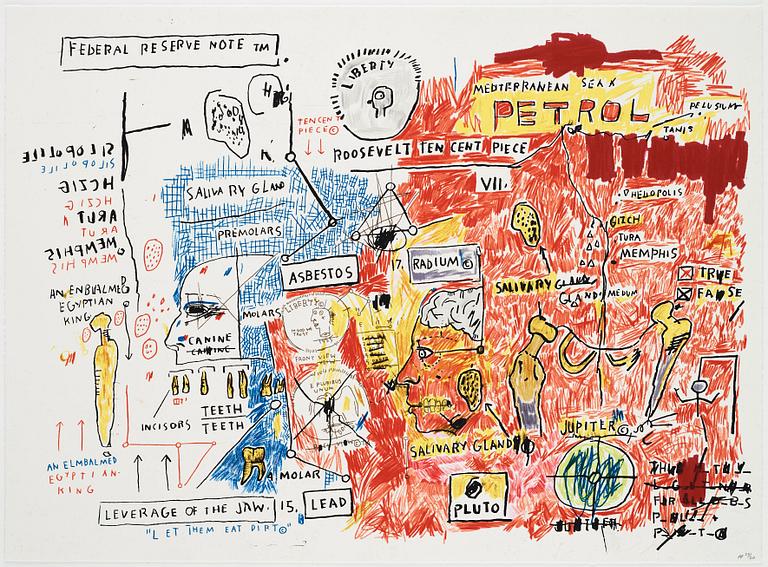 FEDERAL RESERVE NOTE TM
LIBERTY
MEDTERRANEAN SEA X
PETROL
PELUSIUM
TANIS
TEN CENT
PIECE ©
ROOSEVELT TEN CENT PIECE
VII.
SALIVARY GLAND
PREMOLARS
ASBESTOS
17. RADIUM ©
HELIOPOLIS
GIZCH
TURA
MEMPHIS
MEDUM
TRUE
FALSE
SALIVARY GLAND
GLANDS
SILOPOLILE
SILOPOLILE
HCZIG
HCZIG
ARUT
ARUT
MEMPHIS
MEMPHIS
AN ENBLALMED
EGYPTIAN
KING
MOLARS
LIBERTY
FRONT VIEW
E PLURIBUS
UNUM
CANINE
CANINE
TEETH
TEETH
INCISORS
SALIVARY GLAND
JUPITER ©
AN ELMBALMED
EGYPTIAN-
KING
A MOLAR
LEVERAGE OF THE JAW. 15. LEAD
"LET THEM EAT DIRT ©"
PLUTO